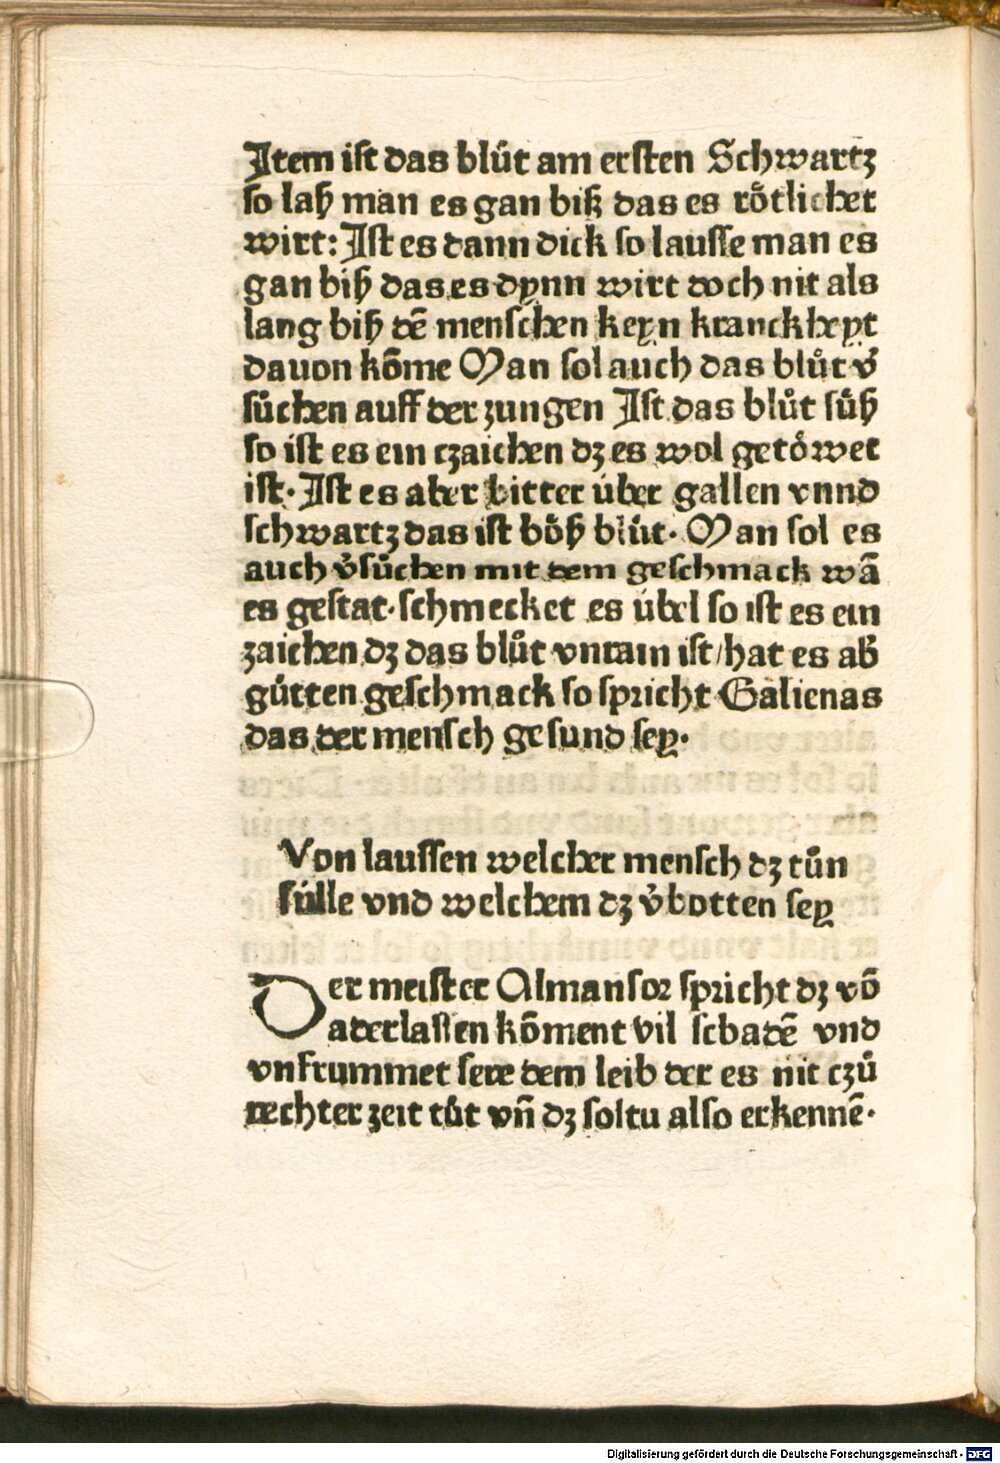 Item iſt das blůt am erſten Schwartz
ſo laß man es gan biß das es rőtlichet
wirt: Iſt es dann dick ſo lauſſe man es
gan biß das es dynn wirt doch nit als
lang biß dē menſchen keyn kranckheyt
dauon kōme Man ſol auch das blůt v̉
ſůchen auff der zungen Iſt das blůt ſůß
ſo iſt es ein czaichen dz es wol getőwet
iſt· Iſt es aber bitter úber gallen vnnd
ſchwartz das iſt bőß blůt· Man ſol es
auch v̉ſůchen mit dem geſchmack wā
es geſtat·ſchmecket es úbel ſo iſt es ein
zaichen dz das blůt vnrain iſt/hat es ab̉
gůtten geſchmack ſo ſpricht Galienas
das der menſch geſund ſey·
Von lauſſen welcher menſch dz tůn
súlle vnd welchem dz v̉botten ſey
Der meiſter Almanſor ſpricht dz vō
aderlaſſen kōment vil ſchadē vnd
vnfrummet ſere dem leib der es nit czů
rechter zeit tůt vn̄ dz ſoltu alſo erkennē·
Digitalisierung gefördert durch die Deutsche Forschungsgemeinschaft - DFG